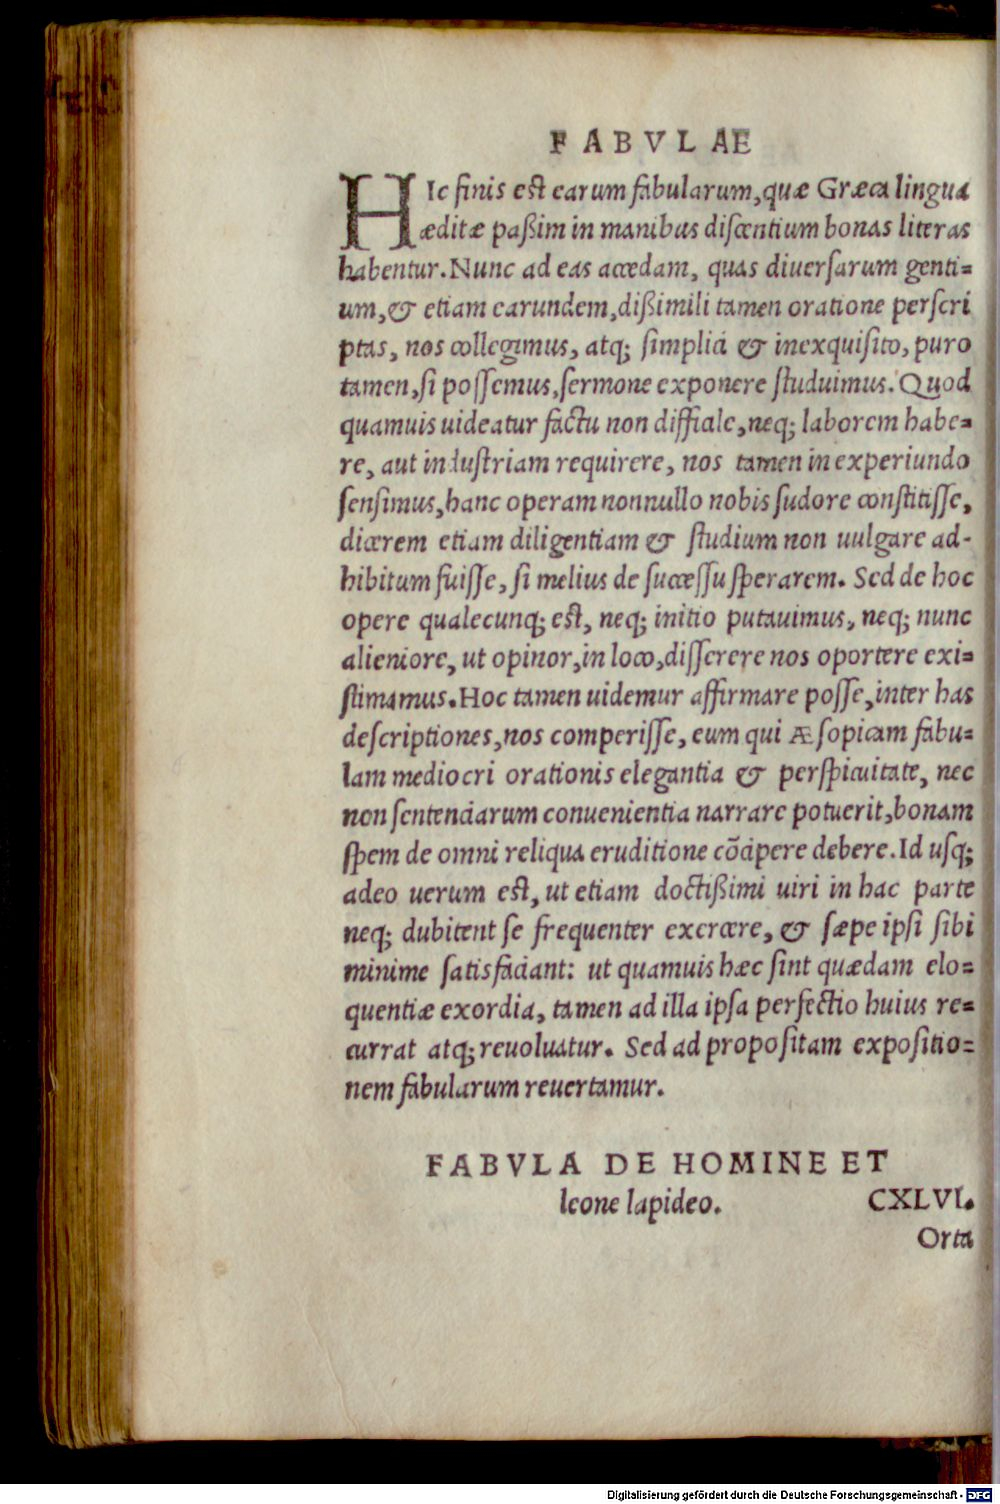 FABVLAE
HIc finis est earum fabularum, quæ Græca lingua
æditæ paßim in manibus discentium bonas literas
habentur. Nunc ad eas accedam, quas diuersarum genti=
um, & etiam earundem, dißimili tamen oratione perscri
ptas, nos collegimus, atq; simplici & inexquisito, puro
tamen, si possemus, sermone exponere studuimus. Quod
quamuis uideatur factu non difficile, neq; laborem habe=
re, aut industriam requirere, nos tamen in experiundo
sensimus, hanc operam nonnullo nobis sudore constitisse,
dicerem etiam diligentiam & studium non uulgare ad-
hibitum fuisse, si melius de successu sperarem. Sed de hoc
opere qualecunq; est, neq; initio putauimus, neq; nunc
alieniore, ut opinor, in loco, disserere nos oportere exi=
stimamus. Hoc tamen uidemur affirmare posse, inter has
descriptiones, nos comperisse, eum qui Æsopicam fabu=
lam mediocri orationis elegantia & perspicuitate, nec
non sentenciarum conuenientia narrare potuerit, bonam
spem de omni reliqua eruditione cõcipere debere. Id usq;
adeo uerum est, ut etiam doctißimi uiri in hac parte
neq; dubitent se frequenter exercere, & sæpe ipsi sibi
minime satisfaciant: ut quamuis hæc sint quædam elo=
quentiæ exordia, tamen ad illa ipsa perfectio huius re=
currat atq; reuoluatur. Sed ad propositam expositio=
nem fabularum reuertamur.
FABVLA DE HOMINE ET
leone lapideo. CXLVI.
Orta
Digitalisierung gefördert durch die Deutsche Forschungsgemeinschaft - DFG